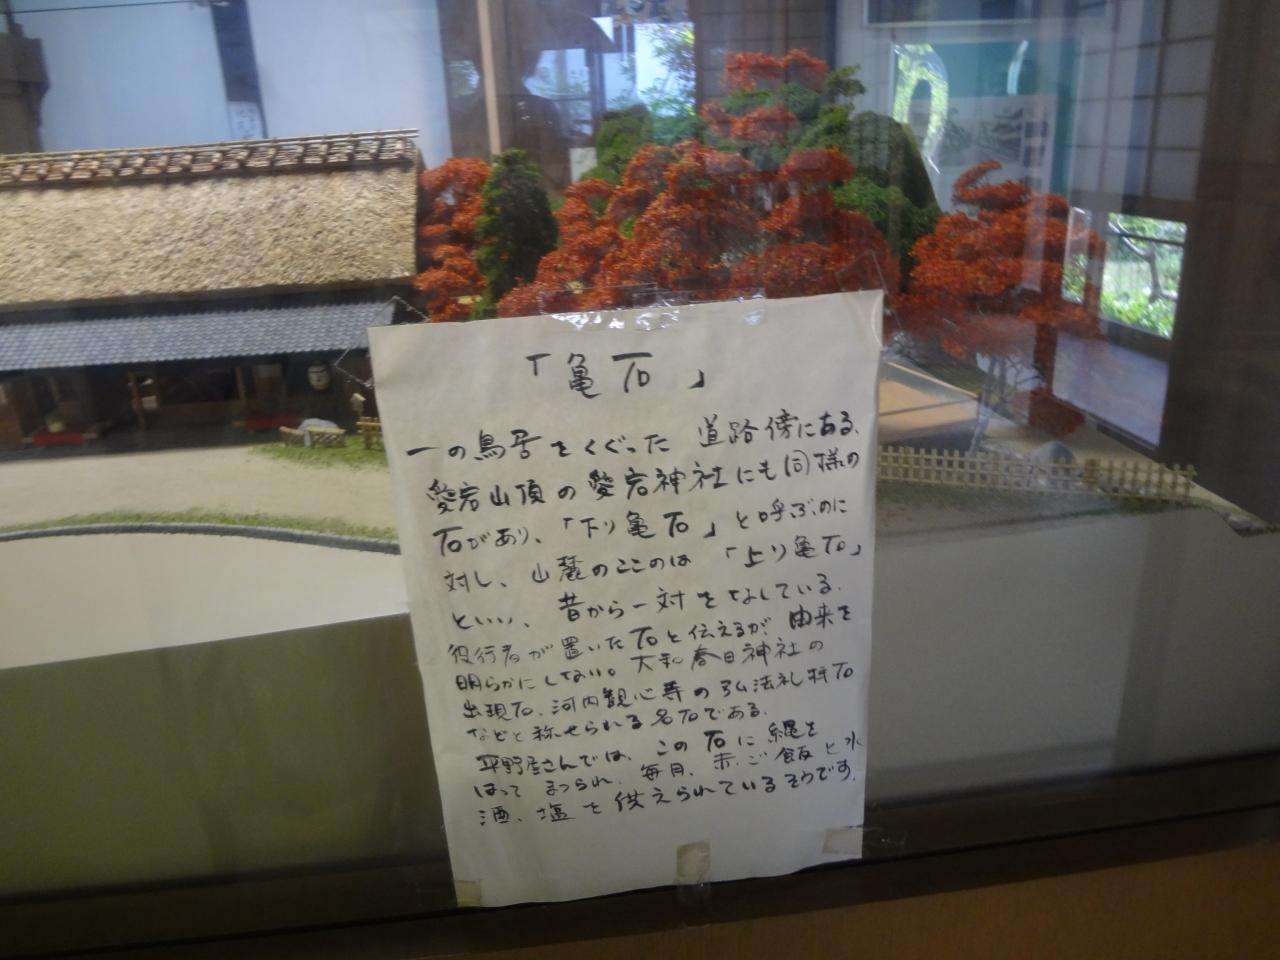 「亀石」
一の鳥居をくぐった 道路傍にある、
愛宕山頂の愛宕神社にも同様の
石があり、「下り亀石」と呼ぶのに
対し、山麓のここのは「上り亀石」
といい、昔から一対をなしている。
役行者が置いた石と伝えるが 由来を
明らかにしない。大和春日神社の
出現石、河内観心寺の弘法礼拝石
などと称せられる名石である。
平野屋さんでは、この石に縄を
はって まつられ、毎月、赤ご飯と水
酒、塩を供えられているそうです。